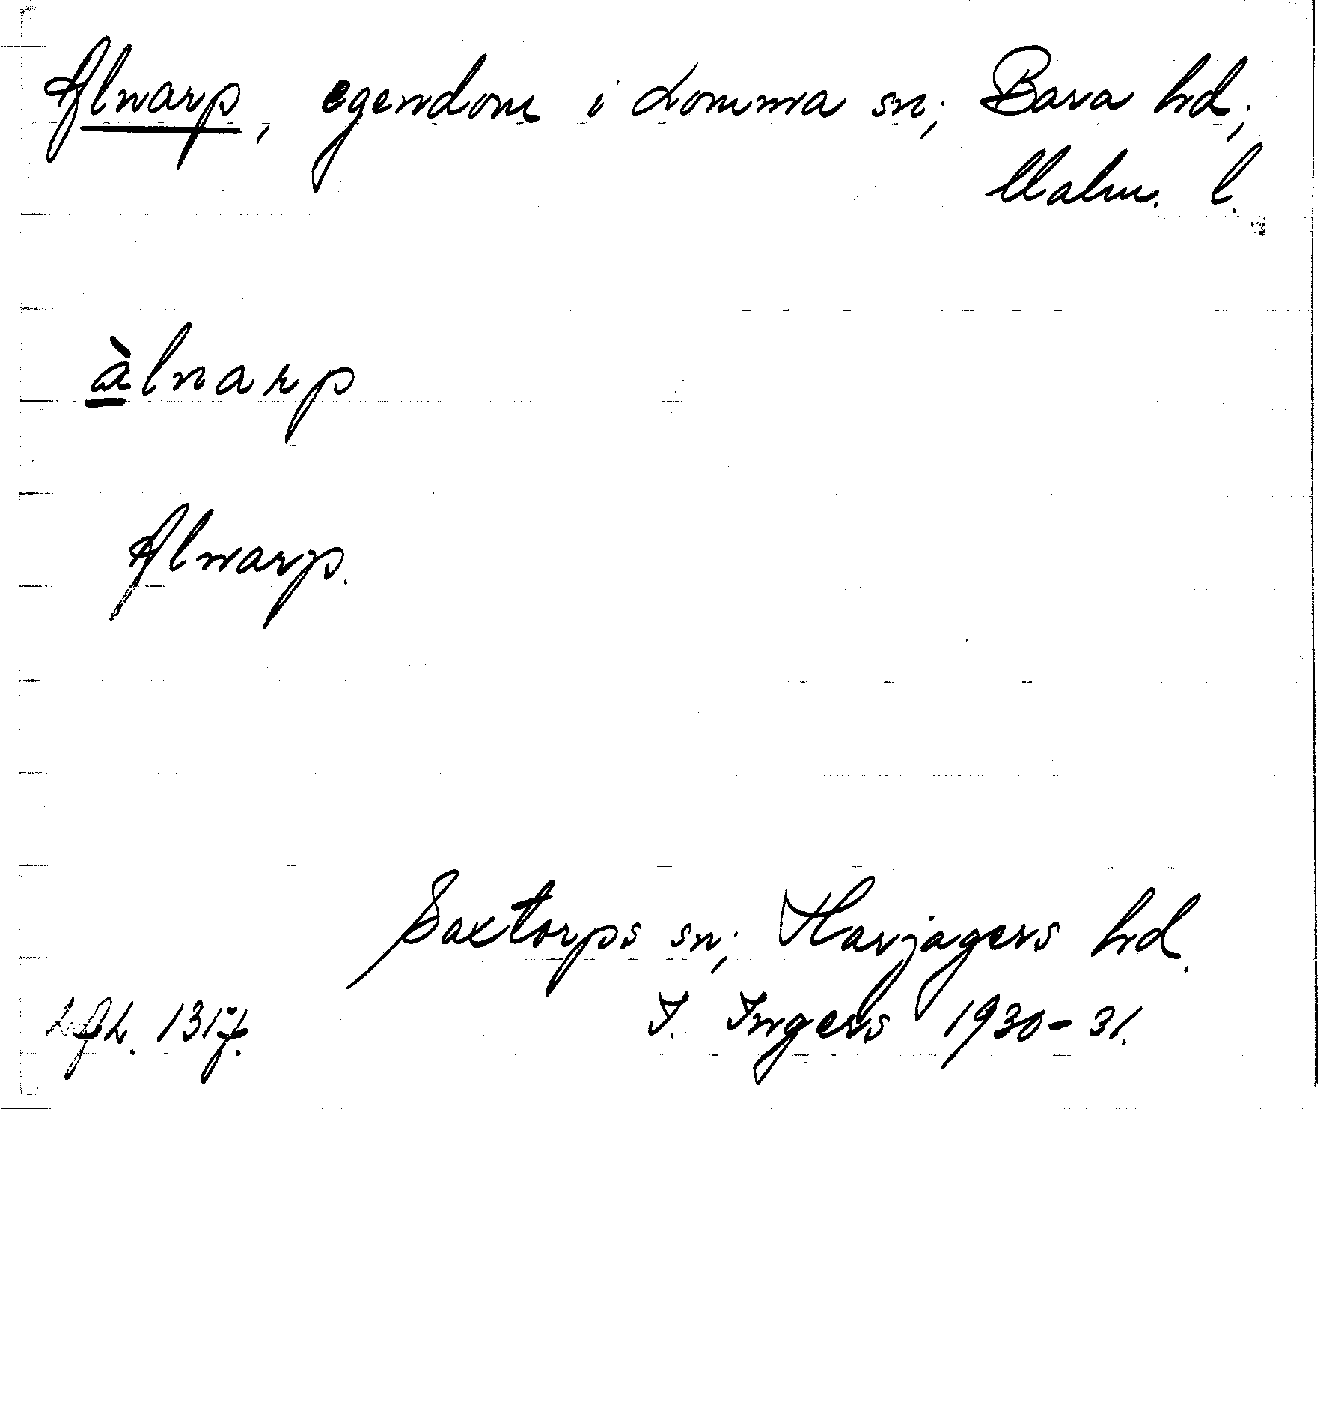 Alnarp, egendom i Lomma sn; Bara hd;
Malm. l.
àlnarp
Alnarp.
Saxtorps sn; Harjagers hd.
LAL. 1317. I. Ingers 1930-31.